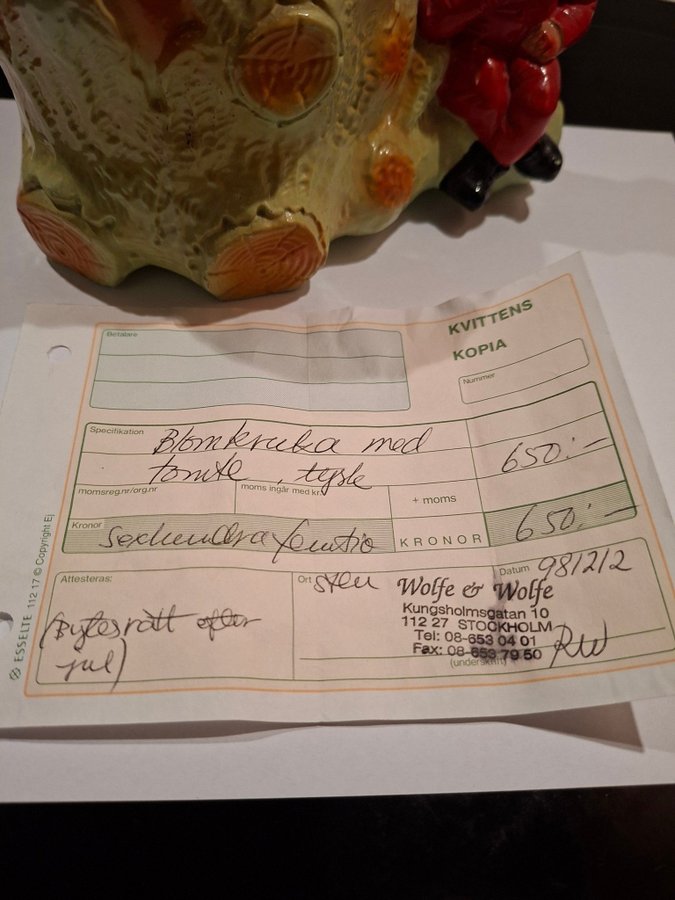 KVITTENS
KOPIA
Betalare
Nummer
Specifikation Blomkruka med
tomte, tysk 650:-
momsreg.nr/org.nr moms ingår med kr. + moms
Kronor sexhundrafemtio KRONOR 650:-
Attesteras: Ort Sthlm Datum 981212
(Bytesrätt efter
jul)
Wolfe & Wolfe
Kungsholmsgatan 10
112 27 STOCKHOLM
Tel: 08-653 04 01
Fax: 08-653 79 50 RW
(underskrift)
ESSELTE 112 17 © Copyright Ej